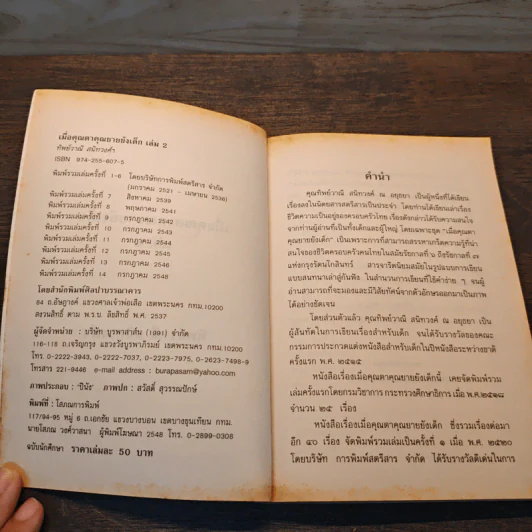 เมื่อคุณตาคุณยายยังเด็ก เล่ม 2
ทิพย์วาณี สนิทวงศ์ฯ
ISBN 974-255-607-5
พิมพ์รวมเล่มครั้งที่ 1-6 โดยบริษัทการพิมพ์สตรีสาร จำกัด
(มกราคม 2521 - เมษายน 2536)
พิมพ์รวมเล่มครั้งที่ 7 สิงหาคม 2539
พิมพ์รวมเล่มครั้งที่ 8 พฤษภาคม 2541
พิมพ์รวมเล่มครั้งที่ 9 กรกฎาคม 2542
พิมพ์รวมเล่มครั้งที่ 10 กรกฎาคม 2543
พิมพ์รวมเล่มครั้งที่ 11 กรกฎาคม 2544
พิมพ์รวมเล่มครั้งที่ 12 กรกฎาคม 2545
พิมพ์รวมเล่มครั้งที่ 13 กรกฎาคม 2546
พิมพ์รวมเล่มครั้งที่ 14 กรกฎาคม 2548
โดยสำนักพิมพ์ศิลปาบรรณาคาร
84 ถ.อัษฎางค์ แขวงศาลเจ้าพ่อเสือ เขตพระนคร กทม.10200
สงวนสิทธิ์ ตาม พ.ร.บ. ลิขสิทธิ์ พ.ศ. 2537
ผู้จัดจำหน่าย : บริษัท บูรพาสาส์น (1991) จำกัด
116-118 ถ.เจริญกรุง แขวงวังบูรพาภิรมย์ เขตพระนคร กทม.10200
โทร. 0-2222-3943, 0-2222-7037, 0-2223-7975, 0-2623-7498-9
โทรสาร 221-9446 e-mail address : burapasam@yahoo.com
ภาพประกอบ : 'ปีนัง' ภาพปก : สวัสดิ์ สุวรรณปักษ์
พิมพ์ที่ : โสภณการพิมพ์
117/94-95 หมู่ 6 ถ.เอกชัย แขวงบางบอน เขตบางขุนเทียน กทม.
นายโสภณ วงศ์วาสนา ผู้พิมพ์โฆษณา 2548 โทร. 0-2899-0308
ฉบับนักศึกษา ราคาเล่มละ 50 บาท
คำนำ
คุณทิพย์วาณี สนิทวงศ์ ณ อยุธยา เป็นผู้หนึ่งที่ได้เขียน
เรื่องลงในนิตยสารสตรีสารเป็นประจำ โดยท่านได้เขียนเล่าเรื่อง
ชีวิตความเป็นอยู่ของครอบครัวไทย เรื่องดังกล่าวได้รับความสนใจ
จากท่านผู้อ่านที่เป็นทั้งเด็กและผู้ใหญ่ โดยเฉพาะชุด "เมื่อคุณตา
คุณยายยังเด็ก" เป็นเพราะการที่สามารถสรรหาเกร็ดความรู้ที่น่า
สนใจของชีวิตครอบครัวคนไทยในสมัยรัชกาลที่ ๖ ถึงรัชกาลที่ ๗
แห่งกรุงรัตนโกสินทร์ สารจากวัตนิยมสมัยในรูปแบบการเขียน
แบบสนทนาเล่าสู่กันฟัง ในสำนวนการเขียนที่ใช้คำง่าย ๆ จนผู้
อ่านสามารถที่จะมองและมีวิสัยทัศน์จากตัวอักษรออกมาเป็นภาพ
ได้อย่างชัดเจน
โดยส่วนตัวแล้ว คุณทิพย์วาณี สนิทวงศ์ ณ อยุธยา เป็น
ผู้สันทัดในการเขียนเรื่องสำหรับเด็ก จนได้รับรางวัลของคณะ
กรรมการประกวดแต่งหนังสือสำหรับเด็กในปีหนังสือระหว่างชาติ
ครั้งแรก พ.ศ. ๒๕๑๕
หนังสือเรื่องเมื่อคุณตาคุณยายยังเด็กนี้ เคยจัดพิมพ์รวม
เล่มครั้งแรกโดยกรมวิชาการ กระทรวงศึกษาธิการ เมื่อ พ.ศ.๒๕๑๘
จำนวน ๒๕ เรื่อง
หนังสือเรื่องเมื่อคุณตาคุณยายยังเด็ก ซึ่งรวมเรื่องต่อมา
อีก ๔๐ เรื่อง จัดพิมพ์รวมเล่มเป็นครั้งที่ ๑ เมื่อ พ.ศ. ๒๕๒๐
โดยบริษัท การพิมพ์สตรีสาร จำกัด ได้รับรางวัลดีเด่นในการ